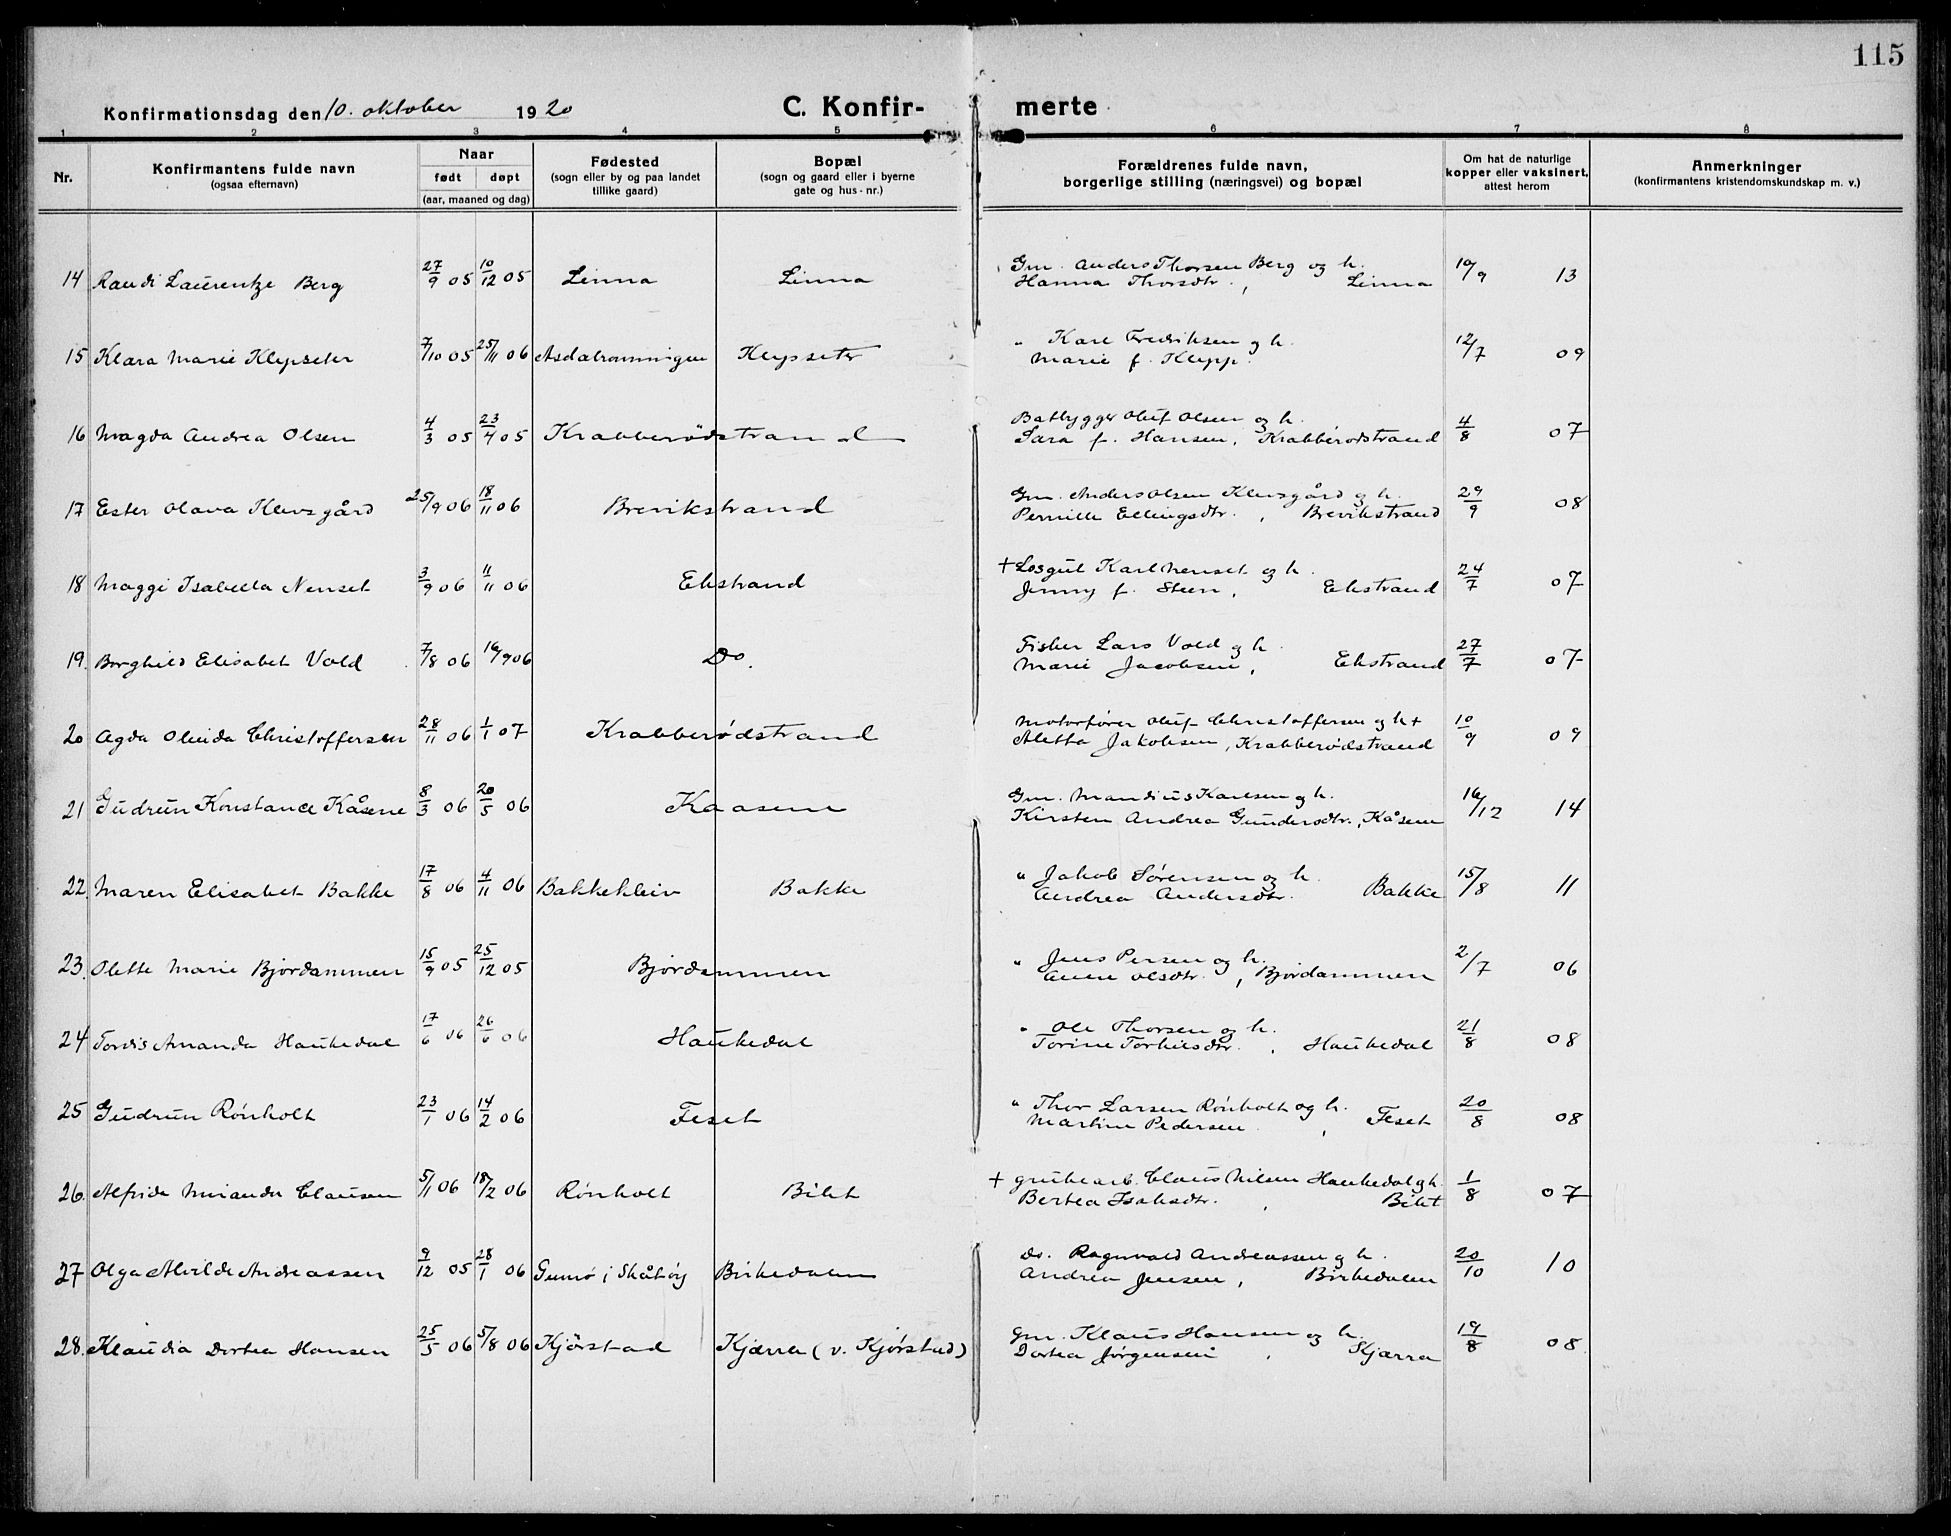 115
Konfirmationsdag den 10. oktober 1920 C. Konfirmerte
1 2 3 4 5 6 7 8
Nr. Konfirmantens fulde navn (ogsaa efternavn) Naar født døpt (aar, maaned og dag) Fødested (sogn eller by og paa landet tillike gaard) Bopæl (sogn og gaard eller i byerne gate og hus-nr.) Forældrenes fulde navn, borgerlige stilling (næringsvei) og bopæl Om hat de naturlige kopper eller vaksinert, attest herom Anmerkninger (konfirmantens kristendomskundskap m. v.)
14 Randi Laurentze Berg 27/9 05 10/12 05 Linna Linna Gm. Anders Thorsen Berg og h. 10/9 13
Hanna Thorsdtr., Linna
15 Klara Marie Klepseter 7/10 05 25/11 06 Asdalronningen Klepseter " Karl Fredriksen og h. 12/7 09
Marie f. Klepp.
16 Magda Andrea Olsen 4/3 05 23/4 05 Krabberødstrand Båtbygger Oluf Olsen og h. 4/8 07
Sara f. Hansen, Krabberødstrand
17 Ester Olava Klevsgård 25/9 06 18/11 06 Brevikstrand Gm. Anders Olsen Klevsgård og h. 29/9 08
Pernille Ellingsdtr., Brevikstrand
18 Maggi Isabella Nenset 3/9 06 11/11 06 Ekstrand + Losgut Karl Nenset og h. 24/7 07
Jenny f. Steen, Ekstrand
19. Borghild Elisabet Vold 7/8 06 16/9 06 Do. Fisker Lars Vold og h. 27/7 07
Marie Jacobsen, Ekstrand
20 Agda Oluida Christoffersen 28/11 06 1/1 07 Krabberødstrand Motorfører Oluf Christoffersen og h+ 10/9 09
Aletta Jakobsen, Krabberødstrand
21 Gudrun Konstance Kåsene 8/3 06 20/5 06 Kaasene Gm. Mandius Karlsen og h. 16/12 14
Kirsten Andrea Gundersdtr., Kåsene
22. Maren Elisabet Bakke 17/8 06 4/11 06 Bakkekleiv Bakke " Jakob Sørensen og h. 15/8 11
Andrea Andersdtr. Bakke
23. Olette Marie Bjørdammen 15/9 05 25/12 05 Bjørdammen " Jens Persen og h. 2/7 06
Anne Olsdtr., Bjørdammen
24 Tordis Amanda Haukedal 17/6 06 26/6 06 Haukedal " Ole Thorsen og h. 21/8 08
Torine Torkilsdtr., Haukedal
25 Gudrun Rønholt 23/1 06 14/2 06 Feset " Thor Larsen Rønholt og h. 20/8 08
Martine Pedersen, Feset
26. Alfrida Miranda Clausen 5/1 06 18/2 06 Rønholt Bilet + grubearb. Claus Nilsen Haukedal og h. 1/8 07
Bertea Isaksdtr., Bilet
27 Olga Alvilde Andreassen 9/12 05 28/1 06 Gumø i Skåtøy Birkedalen Do. Ragnvald Andreassen og h. 20/10 10
Andrea Jensen, Birkedalen
28. Klaudia Dortea Hansen 25/5 06 5/8 06 Kjørstad Kjærra (v. Kjørstad) Gm. Klaus Hansen og h. 19/8 08
Dortea Jørgensen, Skjærra